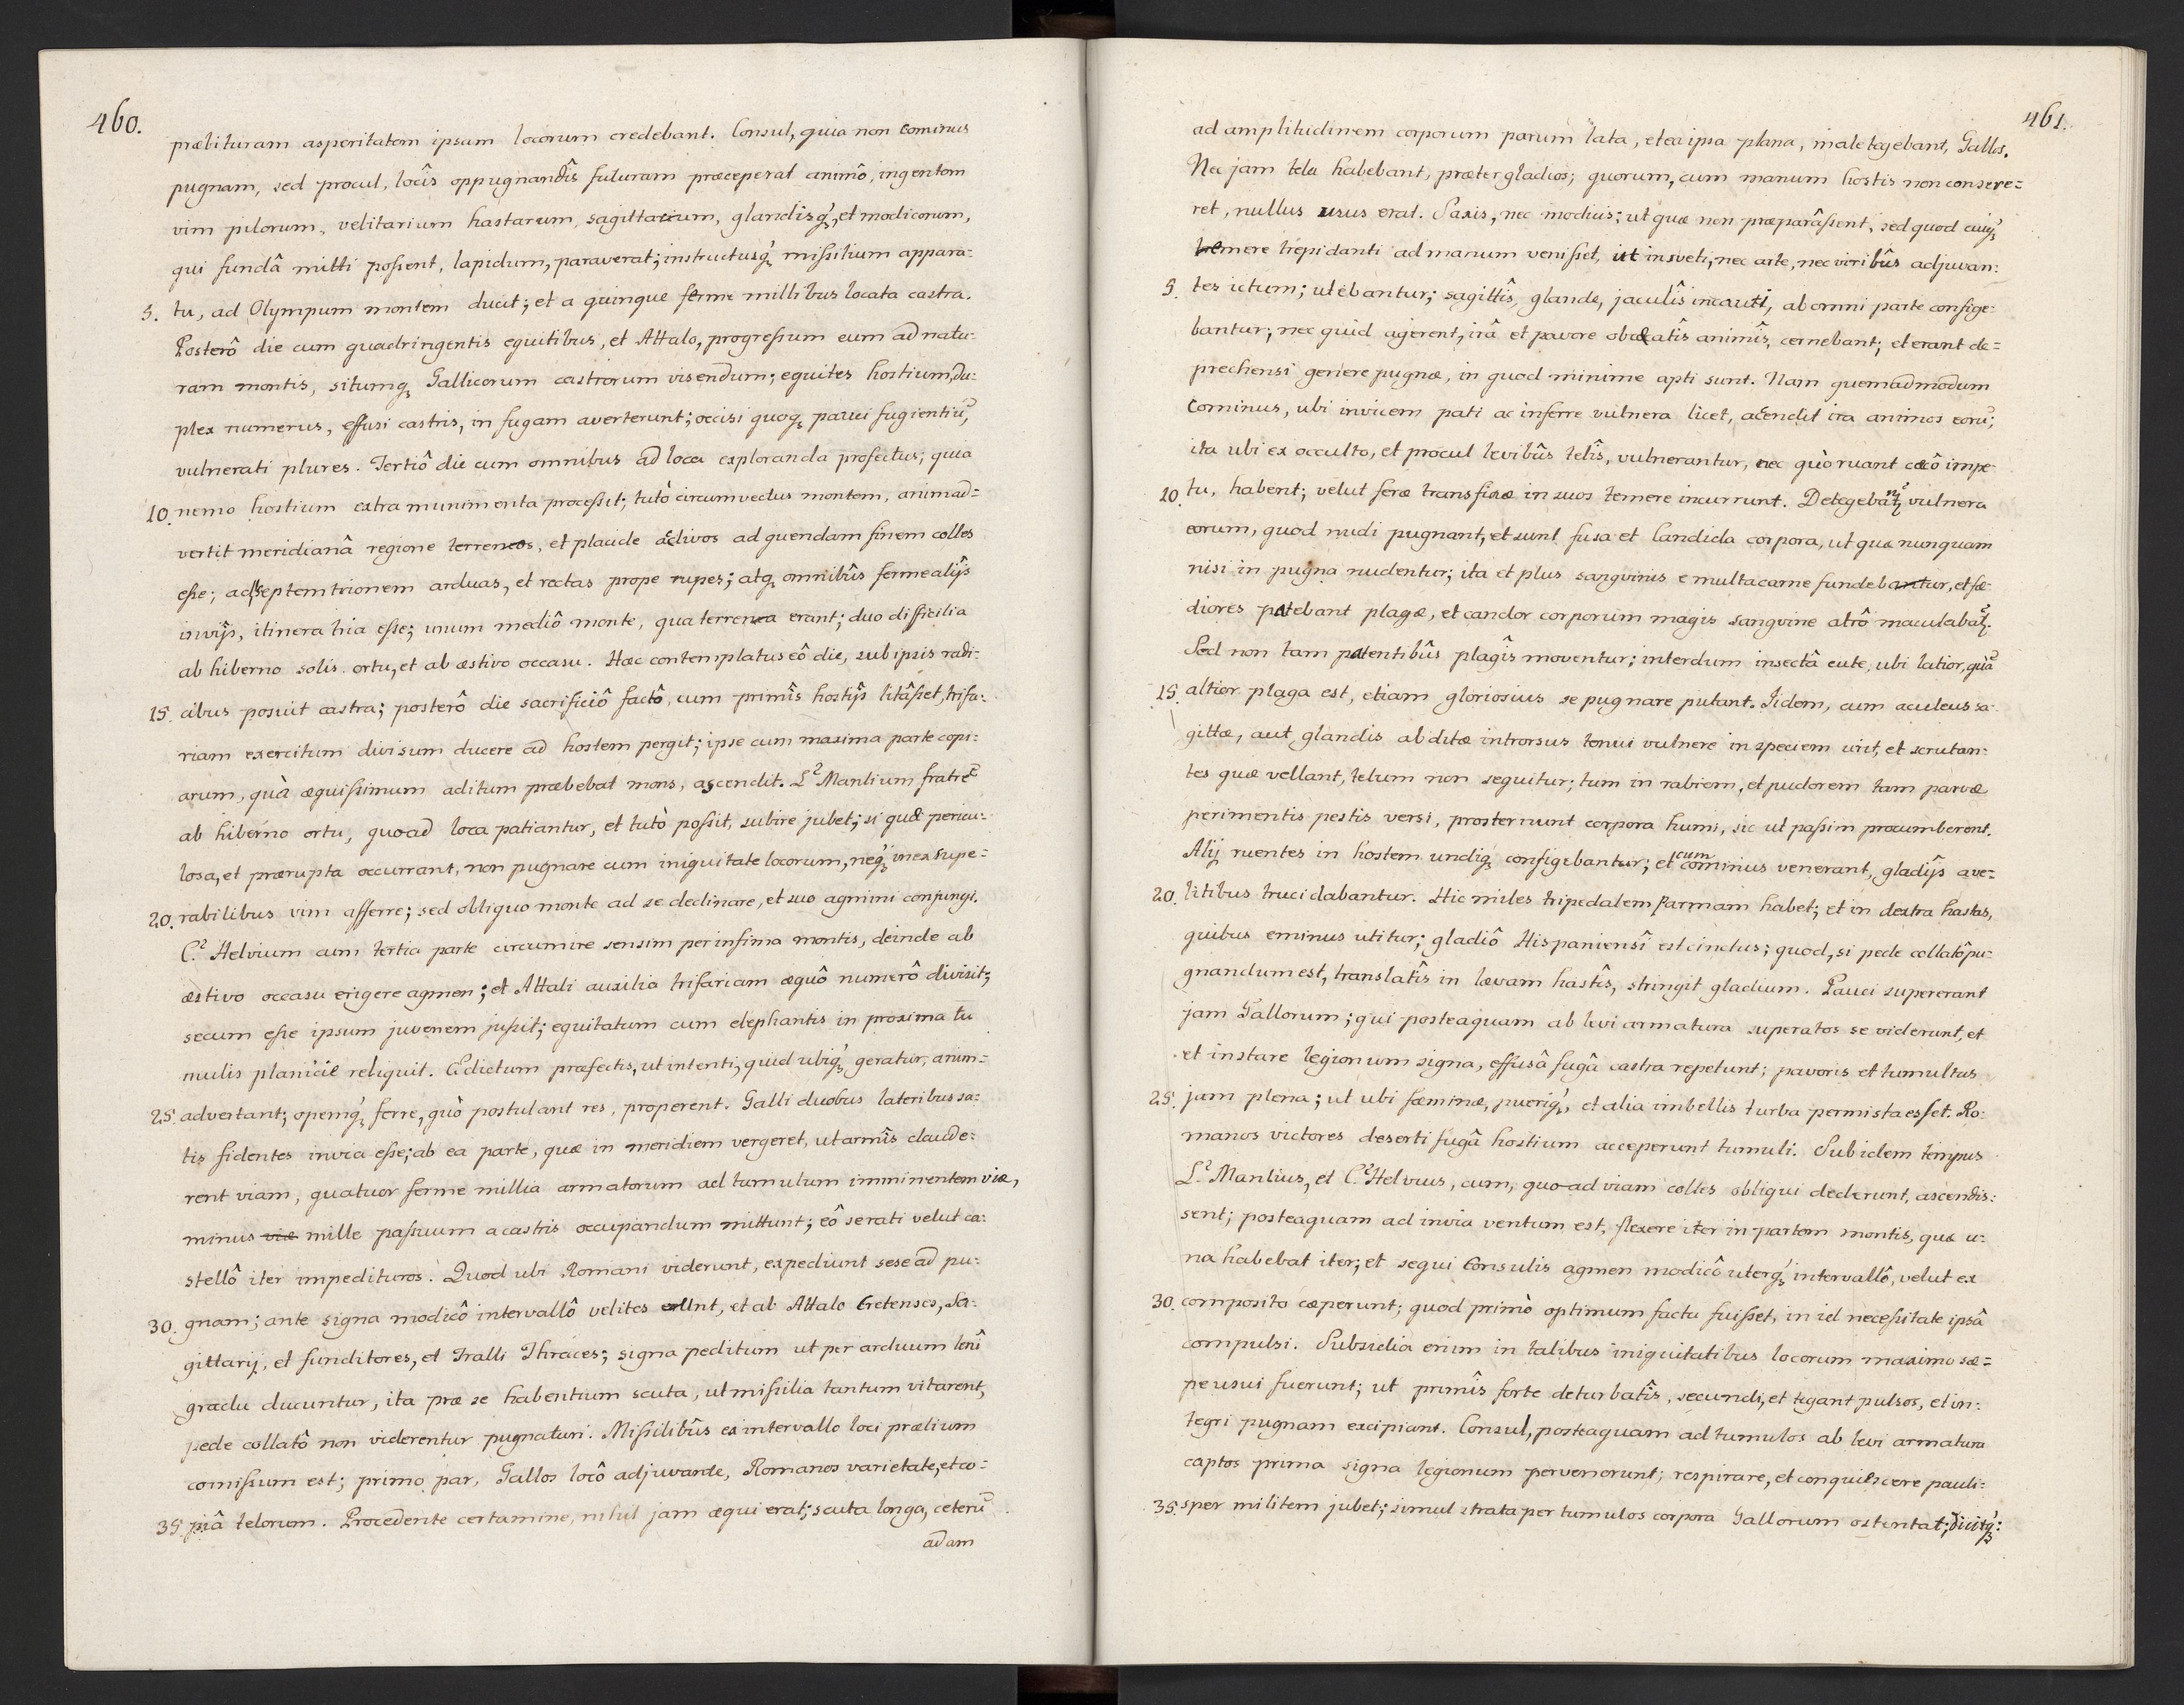 460.
præbituram asperitatem ipsam locorum credebant. Consul, quia non cominus
pugnam, sed procul, locîs oppugnandîs futuram præceperat animô, ingentem
vim pilorum, velitarium hastarum, sagittarium, glandisq́;, et modicorum,
qui fundâ mitti possent, lapidum, paraverat; instructusq́; missilium appara=
5. tu, ad Olympum montem ducit; et a quinque ferme millibus locata castra.
Posterô die cum quadringentis equitibus, et Attalo, progressum eum ad natu-
ram montis, situmq; Gallicorum castrorum visendum; equites hostium, du-
plex numerus, effusi castris, in fugam averterunt; occisi quoq; pauci fugientiũ,
vulnerati plures. Tertiô die cum omnibus ad loca exploranda profectus; quia
10. nemo hostium extra munimenta processit; tutò circumvectus montem, animad=
vertit meridianâ regione terrenos, et placide aclivos ad quendam finem colles
esse; ad septemtrionem arduas, et rectas prope rupes; atq; omnibûs ferme alijs
invijs, itinera tria esse; unum mediô monte, qua terrena erant; duo difficilia
ab hiberno solis ortu, et ab æstivo occasu. Hæc contemplatus eô die, sub ipsis radi-
15. cibus posuit castra; posterô die sacrificiô factô, cum primîs hostijs litâsset, trifa-
riam exercitum divisum ducere ad hostem pergit; ipse cum maxima parte copi-
arum, quà æquissimum aditum præbebat mons, ascendit. L.² Manlium fratrẽ
ab hiberno ortu, quoad loca patiantur, et tutò possit, subire jubet; si quæ pericu-
losa, et prærupta occurrant, non pugnare cum iniquitate locorum, neq́; inexsupe=
20. rabilibus vim afferre; sed obliquo monte ad se declinare, et suo agmini conjungi.
C.² Helvium cum tertia parte circumire sensim per infima montis, deinde ab
æstivo occasu erigere agmen; et Attali auxilia trifariam æquô numerô divisit;
secum esse ipsum juvenem jussit; equitatum cum elephantis in proxima tu
mulis planicie reliquit. Edictum præfectis, ut intenti, quid ubiq́; geratur, anim=
25. advertant; opemq́; ferre, quò postulant res, properent. Galli duobus lateribus sa-
tis fidentes invia esse; ab ea parte, quæ in meridiem vergeret, ut armîs claude-
rent viam, quatuor ferme millia armatorum ad tumulum imminentem viæ,
minus viæ mille passuum a castris occupandum mittunt; eô se rati velut ca-
stellô iter impedituros. Quod ubi Romani viderunt, expediunt sese ad pu-
30. gnam; ante signa modicô intervallô velites eunt, et ab Attalo Cretenses, Sa-
gittarij, et funditores, et Tralli Thraces; signa peditum ut per arduum lenî
gradu ducuntur, ita præ se habentium scuta, ut missilia tantum vitarent,
pede collatô non viderentur pugnaturi. Missilibûs ex intervallo loci prælium
comissum est; primo par, Gallos locô adjuvante, Romanos varietate, et co=
35. piâ telorum. Procedente certamine, nihil jam æqui erat; scuta longa, ceterũ
ad am
461.
ad amplitudinem corporum parum lata, et ea ipsa plana, male tegebant, Gallos.
Nec jam tela habebant, præter gladios; quorum, cum manum hostis non consere=
ret, nullus usus erat. Saxis, nec modicis; ut quæ non præparâssent, sed quod cuiq́;
temere trepidanti ad manum venisset, ut insveti, nec arte, nec viribûs adjuvan:
5. tes ictum; utebantur; sagittîs, glande, jaculîs incauti, ab omni parte confige-
bantur; nec quid agerent, irâ et pavore obcæcatîs animîs, cernebant; et erant de=
prehensi genere pugnæ, in quod minime apti sunt. Nam quemadmodum
cominus, ubi invicem pati ac inferre vulnera licet, acendit ira animos eorũ;
ita ubi ex occulto, et procul levibûs telîs, vulnerantur, nec quò ruant cæcô impe-
10. tu, habent; velut feræ transfixæ in suos temere incurrunt. Detegebat vulnera
eorum, quod nudi pugnant, et sunt fusa et candida corpora, ut quæ nunquam
nisi in pugna nudentur; ita et plus sangvinis e multa carne fundebantur, et fæ-
diores patebant plagæ, et candor corporum magis sangvine atrô maculabat̃.
Sed non tam patentibûs plagîs moventur; interdum insectâ cute, ubi latior, quã
15. altior plaga est, etiam gloriosius se pugnare putant. Iidem, cum aculeus sa-
gittæ, aut glandis abditæ introrsus tenui vulnere in speciem urit, et scrutan-
tes quæ vellant, telum non sequitur; tum in rabiem, et pudorem tam parvæ
perimentis pestis versi, prosternunt corpora humi, sic ut passim procumberent.
Alij ruentes in hostem undiq; configebantur; et cum cominus venerant, gladijs a ve=
20. litibus trucidabantur. Hic miles tripedalem parmam habet; et in dextra hastas,
quibus eminus utitur; gladiô Hispaniensî est cinctus; quod, si pede collatô pu-
gnandum est, translatîs in lævam hastîs, stringit gladium. Pauci supererant
jam Gallorum; qui posteaquam ab levi armatura superatos se viderunt, et
et instare legionum signa, effusâ fugâ castra repetunt; pavoris et tumultus
25. jam plena; ut ubi fæminæ, pueriq́;, et alia imbellis turba permista esset. Ro-
manos victores deserti fugâ hostium acceperunt tumuli. Sub idem tempus
L.² Manlius, et C.² Helvius, cum, quo ad viam colles obliqui dederunt, ascendis-
sent; posteaquam ad invia ventum est, flexere iter in partem montis, quæ u-
na habebat iter; et sequi Consulis agmen modicô uterq́; intervallô, velut ex
30. composito cæperunt; quod primò optimum factu fuisset, in id necessitate ipsâ
compulsi. Subsidia enim in talibus iniquitatibus locorum maximo sæ=
pe usui fuerunt; ut primîs forte deturbatîs, secundi, et tegant pulsos, et in-
tegri pugnam excipiant. Consul, posteaquam ad tumulos ab levi armatura
captos prima signa legionum pervenerunt; respirare, et conquiescere pauli-
35. sper militem jubet; simul strata per tumulos corpora Gallorum ostentat; dicitq́;: